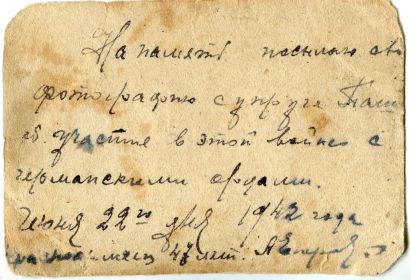 На память посылаю св
фотографию супруге
об участие в этой войне с
германскими ордами.
Июня 22го дня 1942 года
47 лет.